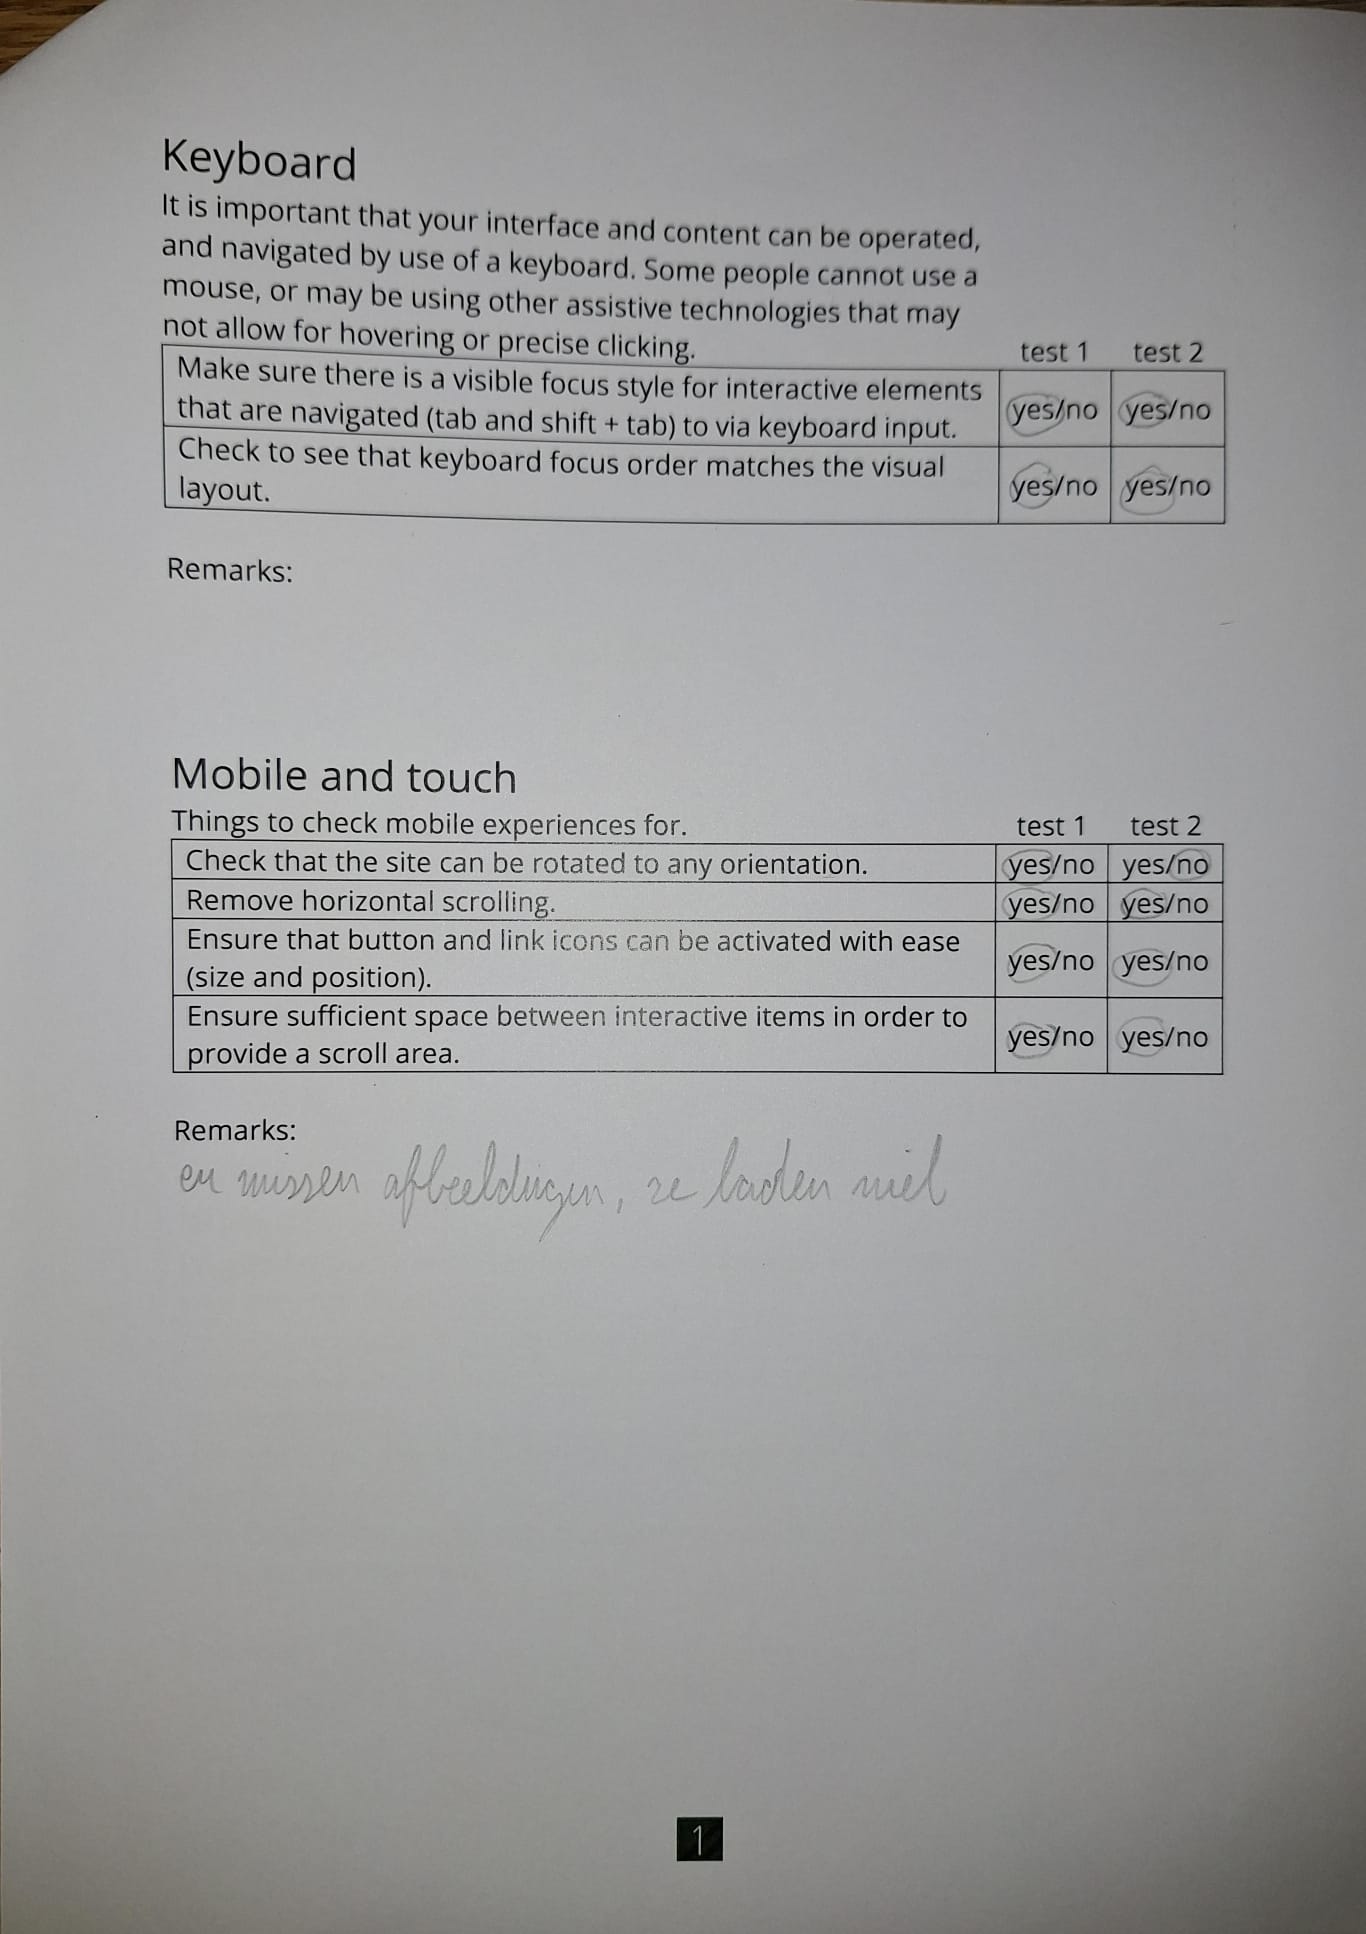 Keyboard
It is important that your interface and content can be operated,
and navigated by use of a keyboard. Some people cannot use a
mouse, or may be using other assistive technologies that may
not allow for hovering or precise clicking. test 1 test 2
Make sure there is a visible focus style for interactive elements
that are navigated (tab and shift + tab) to via keyboard input. yes/no yes/no
Check to see that keyboard focus order matches the visual
layout. yes/no yes/no
Remarks:
Mobile and touch
Things to check mobile experiences for. test 1 test 2
Check that the site can be rotated to any orientation. yes/no yes/no
Remove horizontal scrolling. yes/no yes/no
Ensure that button and link icons can be activated with ease
(size and position). yes/no yes/no
Ensure sufficient space between interactive items in order to
provide a scroll area. yes/no yes/no
Remarks:
er missen afbeeldingen, ze laden niet
1